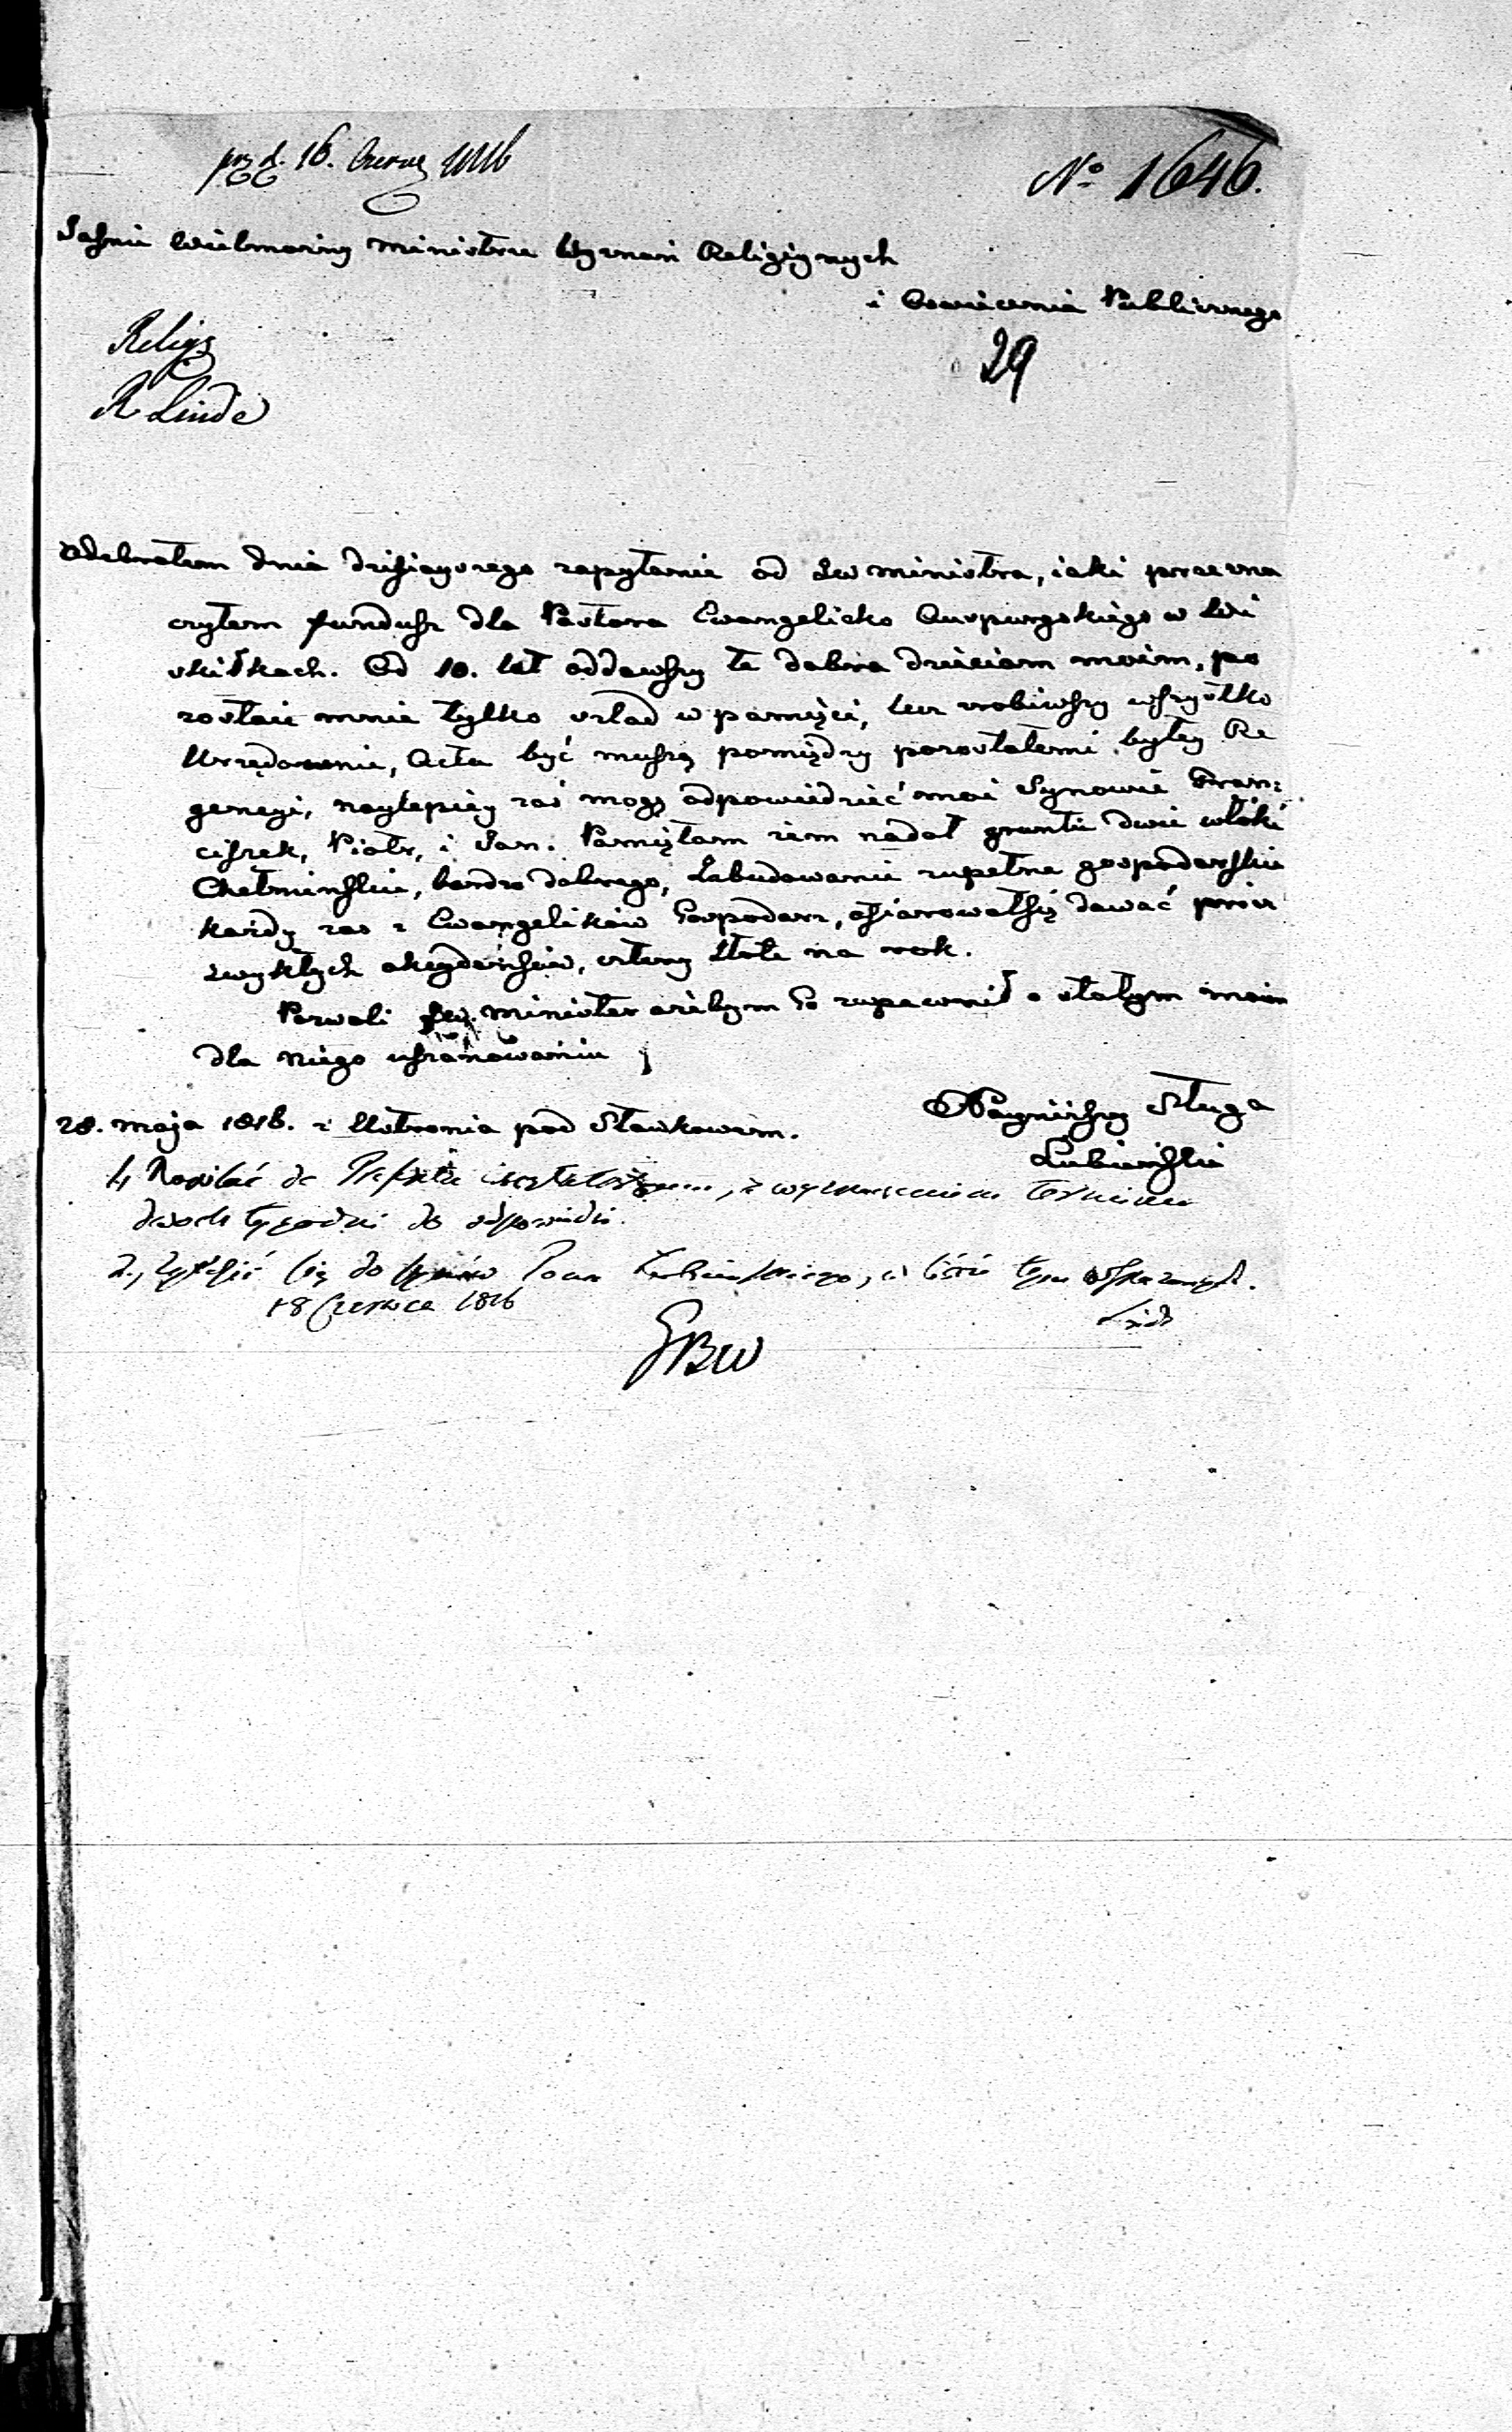 prz d. 16. Czerw 1816
No 1646.
Jaśnie Wielmożny Ministrze Wyznań Religiynych
i Oswiecenia Publicznego
29
Religy
R Linde
Odebrałem dnia dzisiayszego zapytanie od JW Ministra, iaki przezna
czyłem fundusz dla Pastora Ewangelicko Auspurgskiego w Wi
skitkach. Od 10. lat oddawszy te dobra dzieciom moim, po
zostaie mnie tylko szlad w pamięci, lecz zrobiwszy wszystko
Urzędownie, Acta być muszą pomiędzy pozostałemi byłey Re
gencyi, naylepiey zaś mogą odpowiedzieć moi Synowie Fran:
ciszek, Piotr, i Jan. Pamiętam żem nadał gruntu dwie włóki
Chełminskie, bardzo dobrego, Zabudowanie zupełne gospodarskie
każdy zas z Ewangelików Gospodarz, ofiarował się dawać prócz
zwykłych akcydensów, cztery Złote na rok.
Pozwoli JW. Minister ażebym Go zapewnił o stałym moim
dla niego uszanowaniu
Nayniższy Sługa
28. maja 1816. z pod Sławkowem.
Łubieński
1, do z wyznaczeniem terminu
dwóch tygodni do odpowiedzi.
2., się do synów Pana Łubieńskiego, w liście tym wskazanych.
18 Czerwca 1816
Linde
GBW